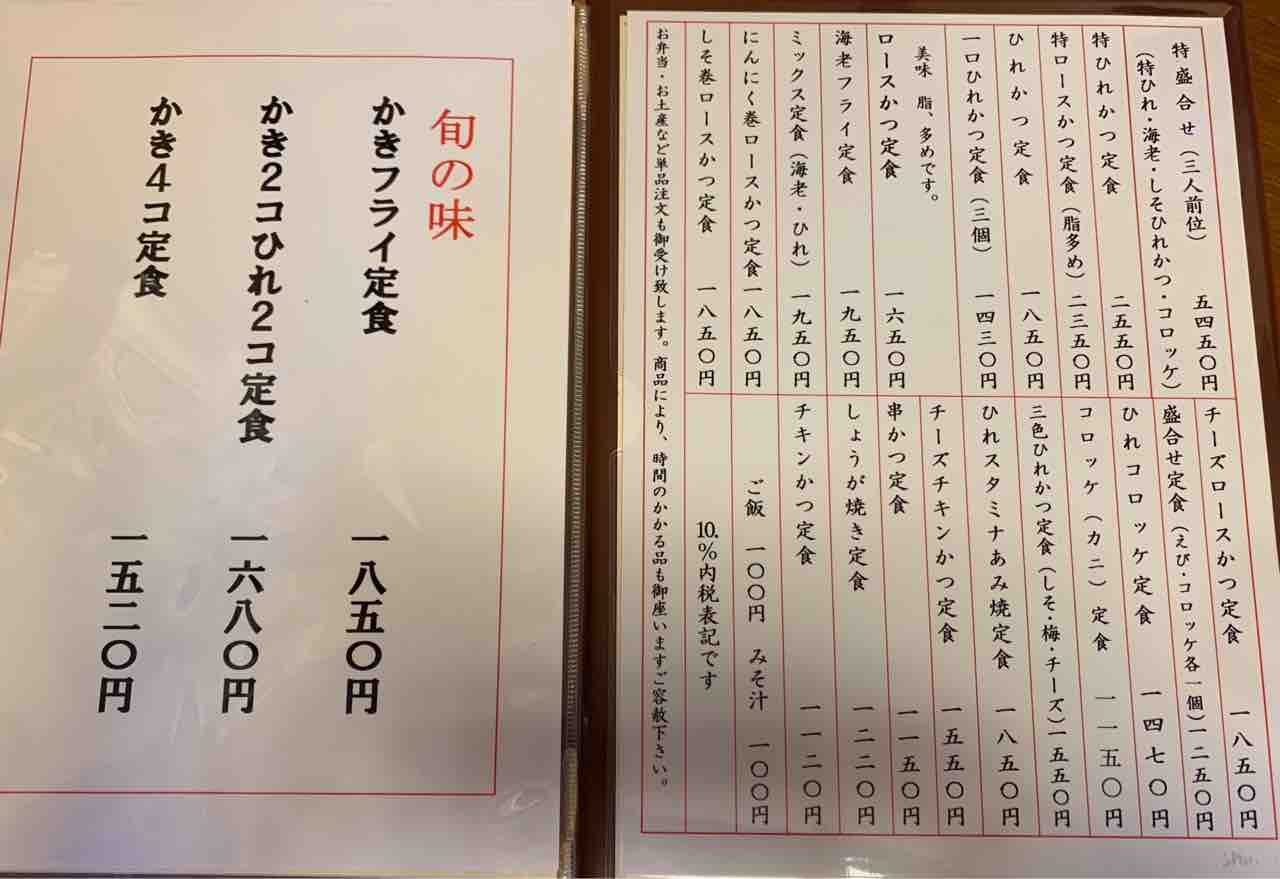 特盛合せ（三人前位） 五四五〇円
（特ひれ・海老・しそひれかつ・コロッケ）
特ひれかつ定食 二五五〇円
特ロースかつ定食（脂多め） 二三五〇円
ひれかつ定食 一八五〇円
一口ひれかつ定食（三個） 一四三〇円
美味 脂、多めです。
ロースかつ定食 一六五〇円
海老フライ定食 一九五〇円
ミックス定食（海老・ひれ） 一九五〇円
にんにく巻ロースかつ定食 一八五〇円
しそ巻ロースかつ定食 一八五〇円
チーズロースかつ定食 一八五〇円
盛合せ定食（えび・コロッケ各一個） 一二五〇円
ひれコロッケ定食 一四七〇円
コロッケ（カニ）定食 一一五〇円
三色ひれかつ定食（しそ・梅・チーズ） 一五五〇円
ひれスタミナあみ焼定食 一八五〇円
チーズチキンかつ定食 一五五〇円
串かつ定食 一一五〇円
しょうが焼き定食 一二二〇円
チキンかつ定食 一一二〇円
ご飯 一〇〇円 みそ汁 一〇〇円
10.%内税表記です
お弁当・お土産など単品注文も御受け致します。商品により、時間のかかる品も御座いますご容赦下さい。
旬の味
かきフライ定食 一八五〇円
かき2コひれ2コ定食 一六八〇円
かき4コ定食 一五二〇円